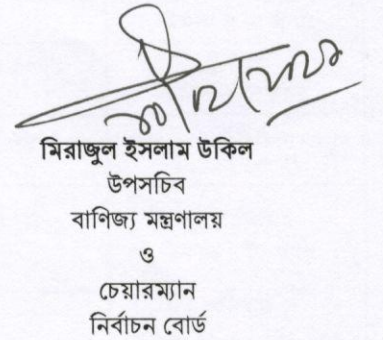 মিরাজুল ইসলাম উকিল
উপসচিব
বাণিজ্য মন্ত্রণালয়
ও
চেয়ারম্যান
নির্বাচন বোর্ড